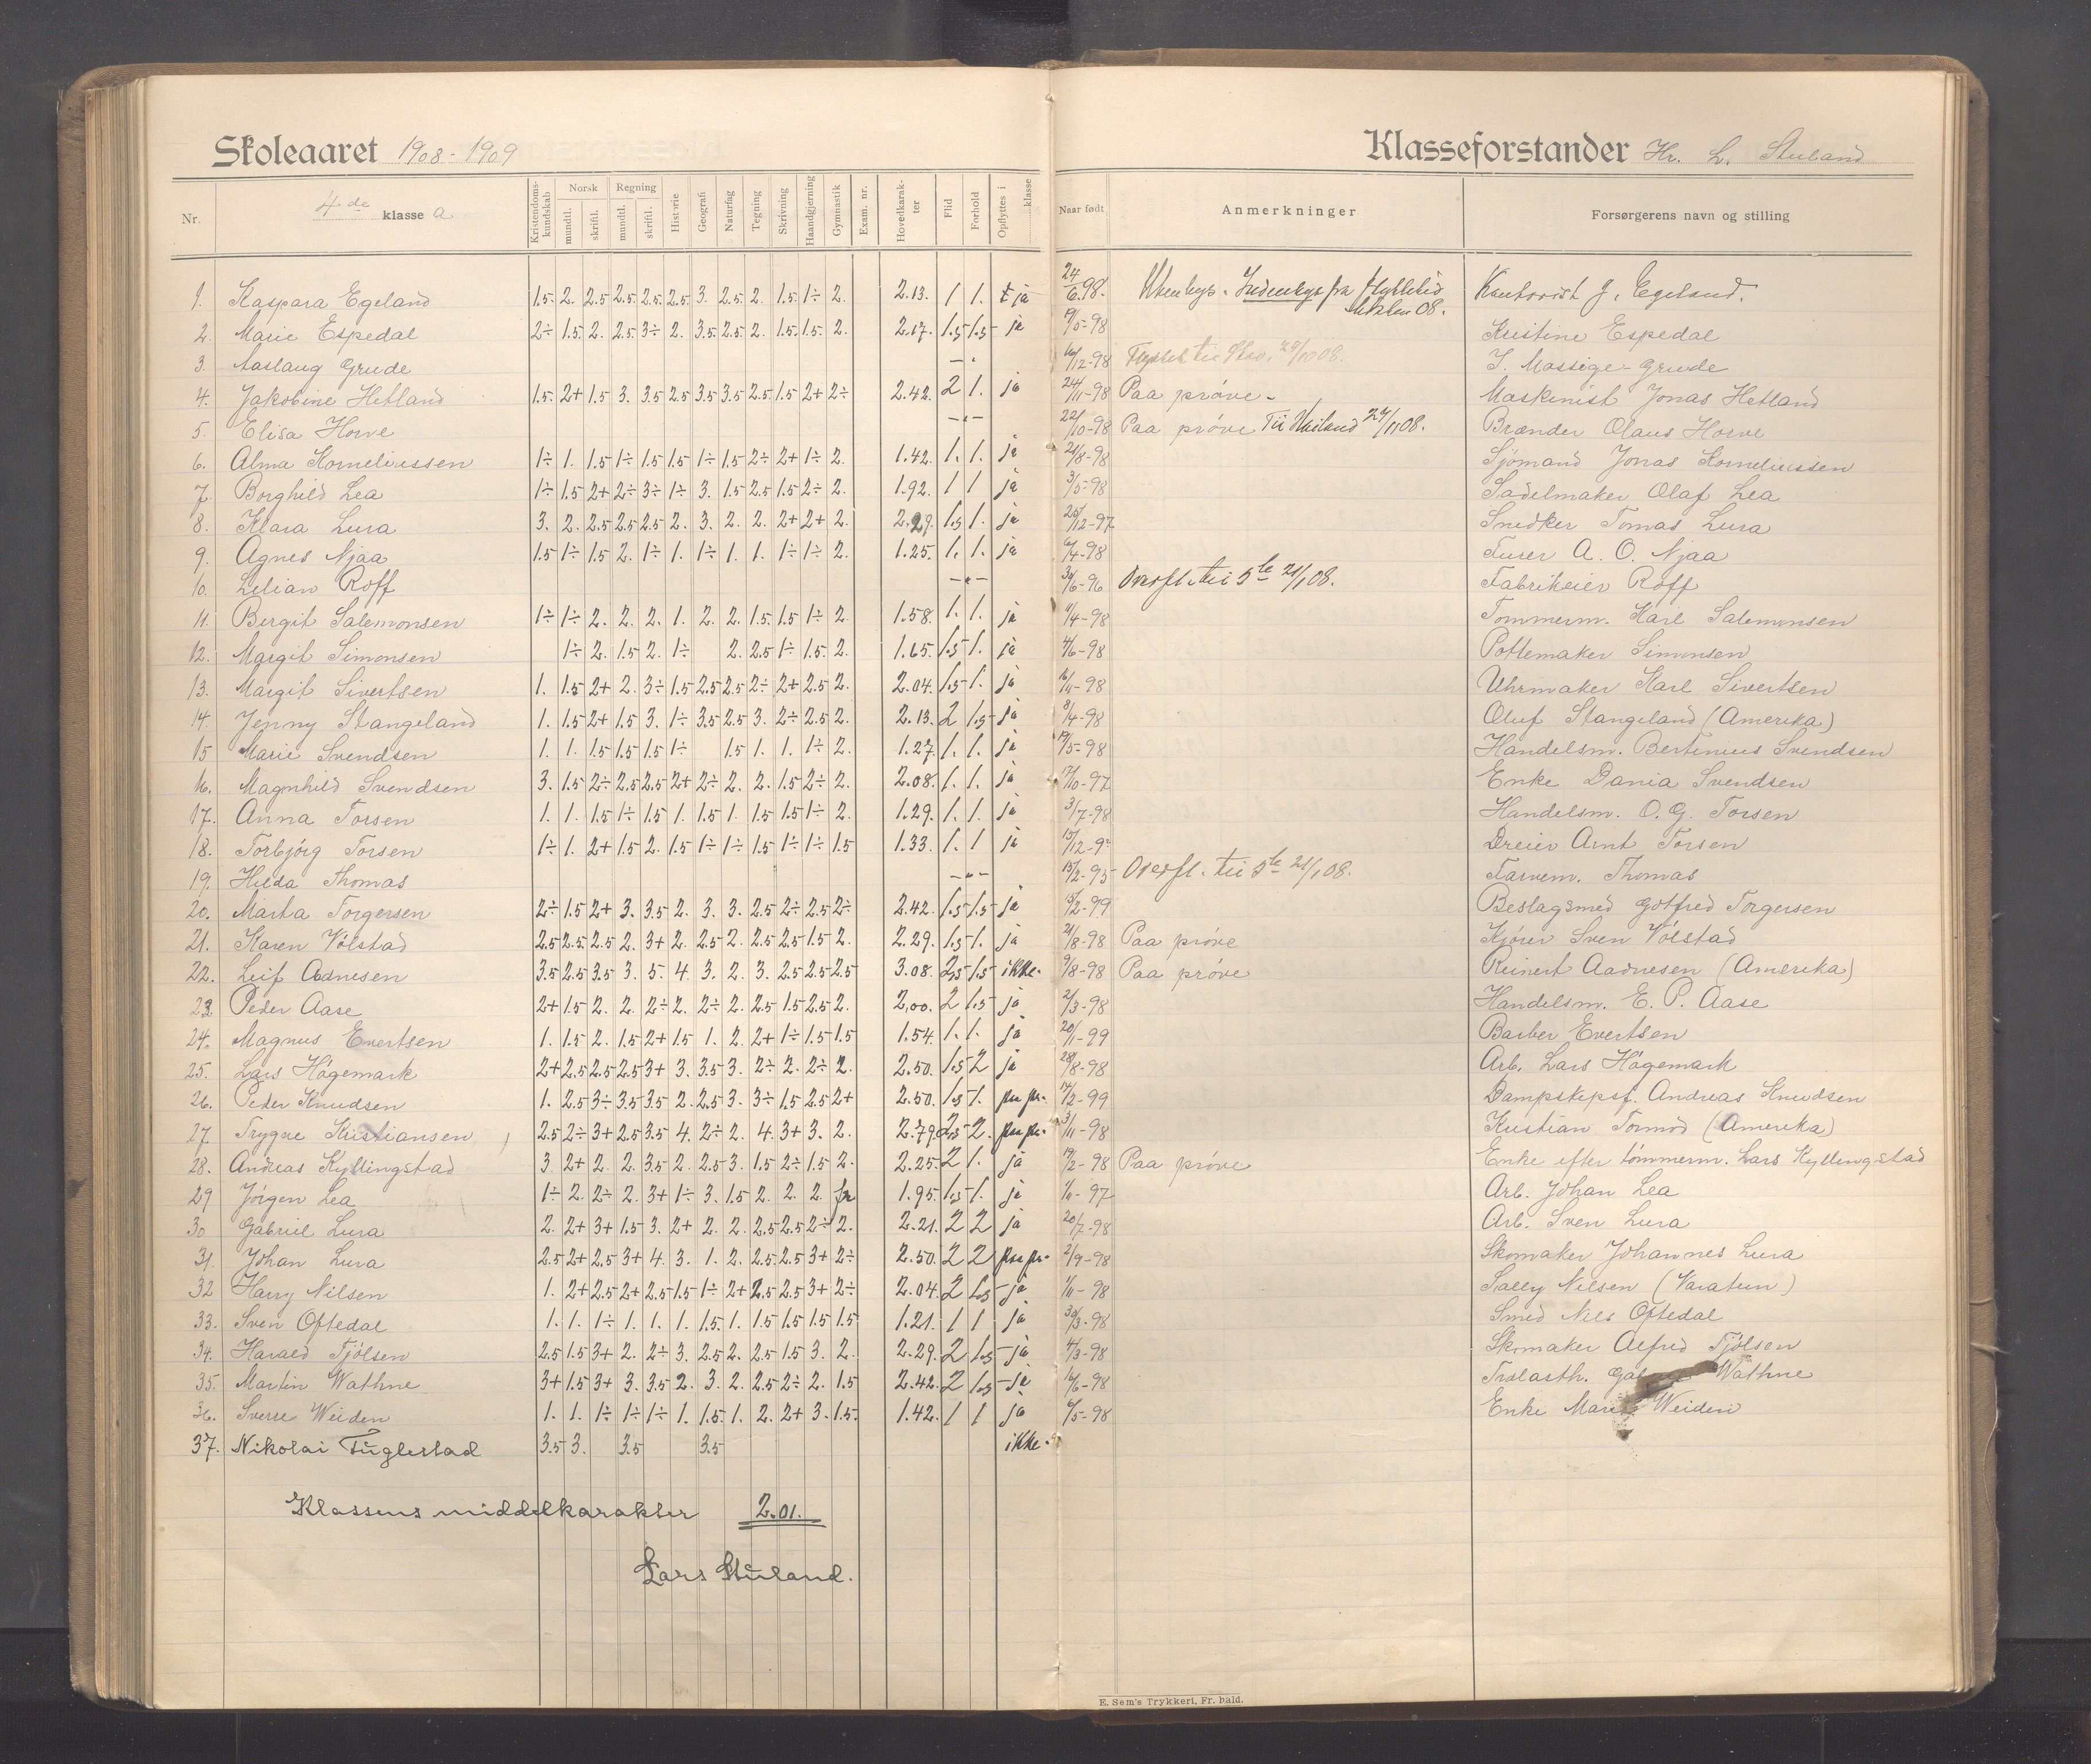 Skoleaaret 1908-1909
Klasseforstander Hr. L. Stuland
Nr. 4de klasse a Kristendomskundskab Norsk mundtl. skriftl. Regning mundtl. skriftl. Historie Geografi Naturfag Tegning Skrivning Haandgjerning Gymnastik Exam. nr. Hovedkarakter Flid Forhold Opflyttes i klasse Naar født Anmerkninger Forsørgerens navn og stilling
1. Kaspara Egeland 1.5 2. 2.5 2.5 2.5 2.5 3. 2.5 2. 1.5 1÷ 2. 2.13. 1 1. ja 24/6.98. Utenbys. Indenbys fra Kontorist J. Egeland.
2. Marie Espedal 2÷ 1.5 2. 2.5 3÷ 2. 3.5 2.5 2. 1.5 1.5 2. 2.17. 1.5 1.5 ja 9/5-98 Kristine Espedal
3. Aaslaug Grude — 16/12-98 Flyttet til 29/10 08. I. Massige-Grude
4. Jakobine Hetland 1.5 2+ 1.5 3. 3.5 2.5 3.5 3.5 2.5 1.5 2+ 2÷ 2.42. 2 1. ja 24/11-98 Paa prøve - Maskinist Jonas Hetland
5. Elisa Horve — 22/10-98 Paa prøve Til 27/11 08. Brænder Olaus Horve
6. Alma Korneliussen 1÷ 1. 1.5 1÷ 1.5 1.5 1÷ 1.5 2÷ 2+ 1÷ 2. 1.42. 1. 1. ja 21/8-98 Sjømand Jonas Korneliussen
7. Borghild Lea 1÷ 1.5 2+ 2÷ 3÷ 1÷ 3. 1.5 2.5 1.5 2÷ 2. 1.92. 1 1 ja 3/5-98 Sadelmaker Olaf Lea
8. Klara Lura 3. 2. 2.5 2.5 2.5 2. 3. 2. 2. 2+ 2+ 2. 2.29. 1.5 1. ja 26/12-97 Snedker Tomas Lura
9. Agnes Njaa 1.5 1÷ 1.5 2. 1÷ 1. 1÷ 1. 1. 1÷ 1÷ 2. 1.25. 1. 1. ja 6/4-98 A. O. Njaa
10. Lilian Roff — 30/6-96 Overfl. til 5te 21/1 08. Fabrikeier Roff
11. Bergit Salemonsen 1÷ 1÷ 2. 2. 2. 1. 2. 2. 1.5. 1.5 1÷ 2. 1.58. 1. 1. ja 11/4-98 Tommerm. Karl Salemonsen
12. Margit Simonsen 1÷ 2. 1.5 2. 1÷ 2. 2.5 1÷ 1.5. 2. 1.65. 1.5 1. ja 4/6-98 Pottemaker Simonsen
13. Margit Sivertsen 1. 1.5 2+ 2. 3÷ 1.5 2.5 2.5 2÷ 2+ 2.5 2. 2.04. 1.5 1. ja 16/1-98 Uhrmaker Karl Sivertsen
14. Jenny Stangeland 1. 1.5 2+ 1.5 3. 1÷ 3.5 2.5 3. 2÷ 2.5 2. 2.13. 2 1.5 ja 8/4-98 Oluf Stangeland (Amerika)
15 Marie Svendsen 1. 1. 1.5 1.5 1.5 1÷ 1.5 1. 1. 1÷ 2. 1.27. 1. 1. ja 19/5-98 Handelsm. Bertinius Svendsen
16. Magnhild Svendsen 3. 1.5 2÷ 2.5 2.5 2+ 2÷ 2. 2. 1.5 2÷ 2. 2.08. 1. 1. ja 17/10-97 Enke Dania Svendsen
17. Anna Torsen 1. 1. 1.5 1÷ 1.5 1. 1.5 1. 1.5 1.5 1÷ 2. 1.29. 1. 1. ja 3/7-98 Handelsm. O. G. Torsen
18. Torbjørg Torsen 1÷ 1. 2+ 1.5 2. 1.5 1÷ 1÷ 1.5 1÷ 1÷ 1.5 1.33. 1. 1 ja 15/12-9 Dreier Arnt Torsen
19. Hilda Thomas — 15/2-95 Overfl. til 5te 21/1 08. Farvem. Thomas
20. Marta Torgersen 2÷ 1.5 2+ 3. 3.5 2. 3. 3. 2.5 2÷ 2.5 2÷ 2.42. 1.5 1.5 ja 15/2-99 Beslagsmed Gotfred Torgersen
21. Karen Vølstad 2.5 2.5. 2.5 2. 3+ 2. 2.5 2. 2.5 2.5 1.5 2. 2.29. 1.5 1. ja 21/8-98 Paa prøve Kjører Sven Vølstad
22. Leif Aadnesen 3.5 2.5 3.5 3. 5. 4. 3. 2. 3. 2.5 2.5 2.5 3.08. 2.5 1.5 ikke. 9/8-98 Paa prøve Reinert Aadnesen (Amerika)
23. Peder Aase 2+ 1.5 2. 2. 2÷ 2. 2÷ 2. 2.5 1.5 2.5 2. 2.00. 2 1.5 ja 2/3-98 Handelsm. E. P. Aase
24. Magnus Evertsen 1. 1.5 2. 1.5 2+ 1.5 1. 2. 2+ 1÷ 1.5 1.5 1.54. 1. 1. ja 20/1-99 Barber Evertsen
25. Lars Høgemark 2+ 2.5 2.5 2.5 3+ 3. 3.5 3. 2÷ 2. 2÷ 2. 2.50. 1.5 2 ja 28/8-98 Arb. Lars Høgemark
26. Peder Knudsen 1. 2.5 3÷ 3.5 3.5 2. 2.5 3. 3÷ 1.5 2.5 2+ 2.50. 1.5 1. paa pr. 17/2-99 Dampskipsf. Andreas Knudsen
27. Trygve Kristiansen 2.5 2÷ 3+ 2.5 3.5 4. 2÷ 2. 4. 3+ 3. 2. 2.79. 2.5 2. paa pr. 3/11-98 Kristian Tormod (Amerika)
28. Andreas Kyllingstad 3 2+ 2 2. 3.5 2. 2.5 3. 1.5 2÷ 1.5 2. 2.25. 2 1. ja 19/2-98 Paa prøve Enke efter tømmerm. Lars Kyllingstad
29 Jørgen Lea 1÷ 2. 2÷ 2. 3+ 1÷ 3. 1.5 2. 2. 2. fr 1.95. 1.5 1. ja 1/11-97 Arb. Johan Lea
30 Gabriel Lura 2. 2+ 3+ 1.5 3. 2+ 2. 2. 2.5 2.5 2÷ 2. 2.21. 2 2 ja 20/7-98 Arb. Sven Lura
31. Johan Lura 2.5 2+ 2.5 3+ 4. 3. 1. 2. 2.5. 2.5 3+ 2÷ 2.50. 2 2 paa pr. 2/9-98 Skomaker Johannes Lura
32 Harry Nilsen 1. 2+ 2.5 2+ 2.5 1.5 1÷ 2+ 2.5 2.5 3+ 2÷ 2.04. 2 1.5 ja 1/11-98 Sally Nilsen (Varatun)
33. Sven Oftedal 1. 1. 1÷ 1. 1. 1. 1.5. 1. 1.5 1.5 1.5 1.5 1.21. 1 1 ja 30/3-98 Smed Nils Oftedal
34. Harald Tjølsen 2.5 1.5 3+ 2. 2÷ 3. 2.5 2. 2.5 1.5 3. 2. 2.29. 2 1.5 ja 4/3-98 Skomaker Alfred Tjølsen
35. Martin Wathne 3+ 1.5 3+ 3. 3.5 2. 3. 2. 2.5 2÷ 2. 1.5 2.42. 2 1.5 ja 16/6-98 Wathne
36. Sverre Weiden 1. 1. 1÷ 1÷ 1÷ 1. 1.5. 1. 2. 2+ 3. 1.5. 1.42. 1 1 ja 6/5-98 Enke Weiden
37. Nikolai Fuglestad 3.5 3. 3.5 3.5 ikke.
Klassens middelkarakter 2.01.
Lars Stuland.
E. Sem's Trykkeri, Fr. hald.